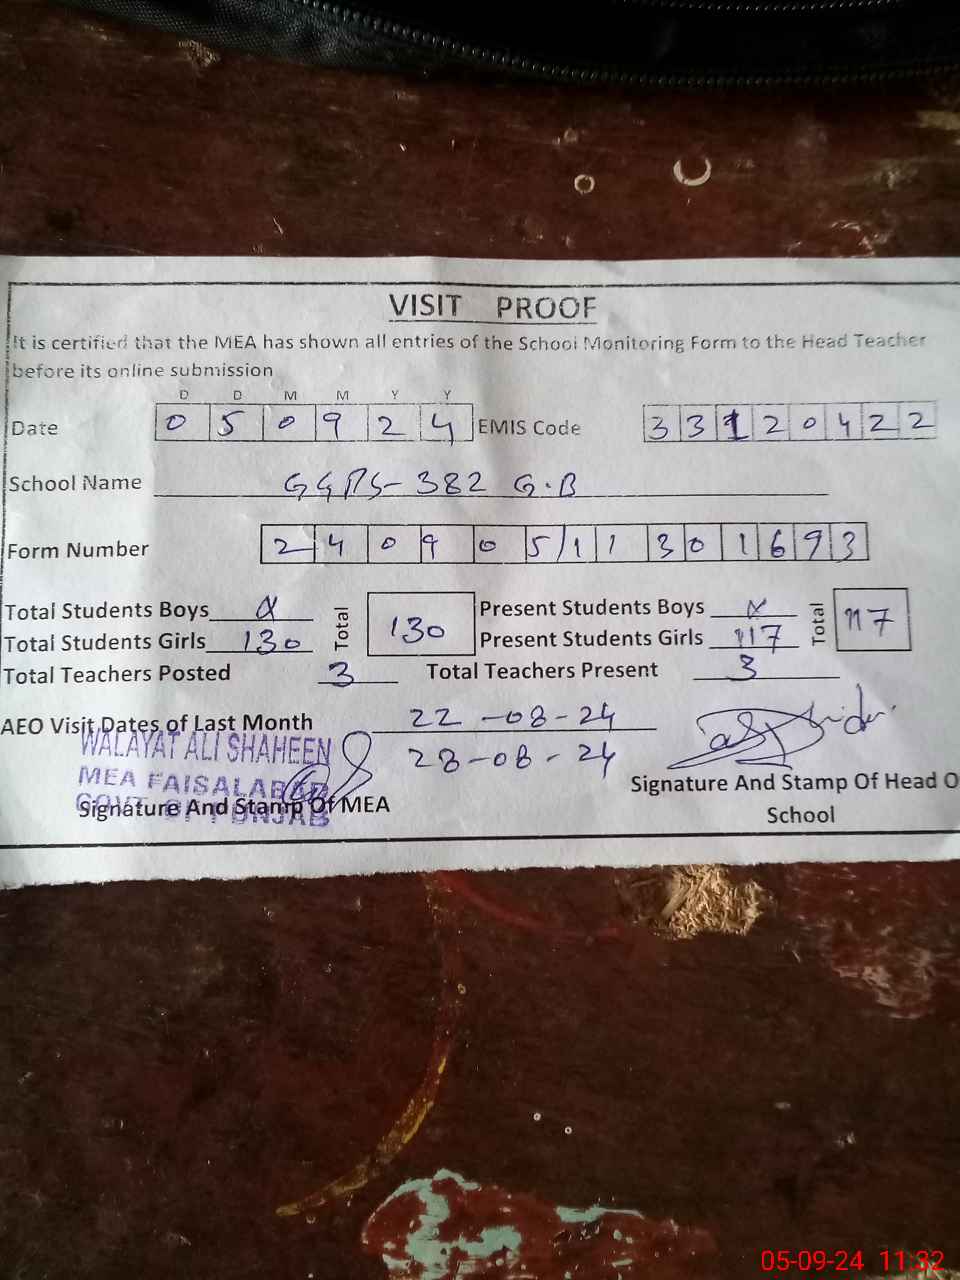 VISIT PROOF
It is certified that the MEA has shown all entries of the School Monitoring Form to the Head Teacher
before its online submission
D D M M Y Y
Date 0 5 0 9 2 4 EMIS Code 3 3 1 2 0 4 2 2
School Name GGPS-382 G.B
Form Number 2 4 0 9 0 5/1 1 3 0 1 6 9 3
Total Students Boys x Total 130 Present Students Boys x Total 117
Total Students Girls 130 Present Students Girls 117
Total Teachers Posted 3 Total Teachers Present 3
AEO Visit Dates of Last Month 22-08-24
28-08-24
WALAYAT ALI SHAHEEN
MEA FAISALABAD
GOVT OF PUNJAB
Signature And Stamp Of MEA
Signature And Stamp Of Head O
School
05-09-24 11:32